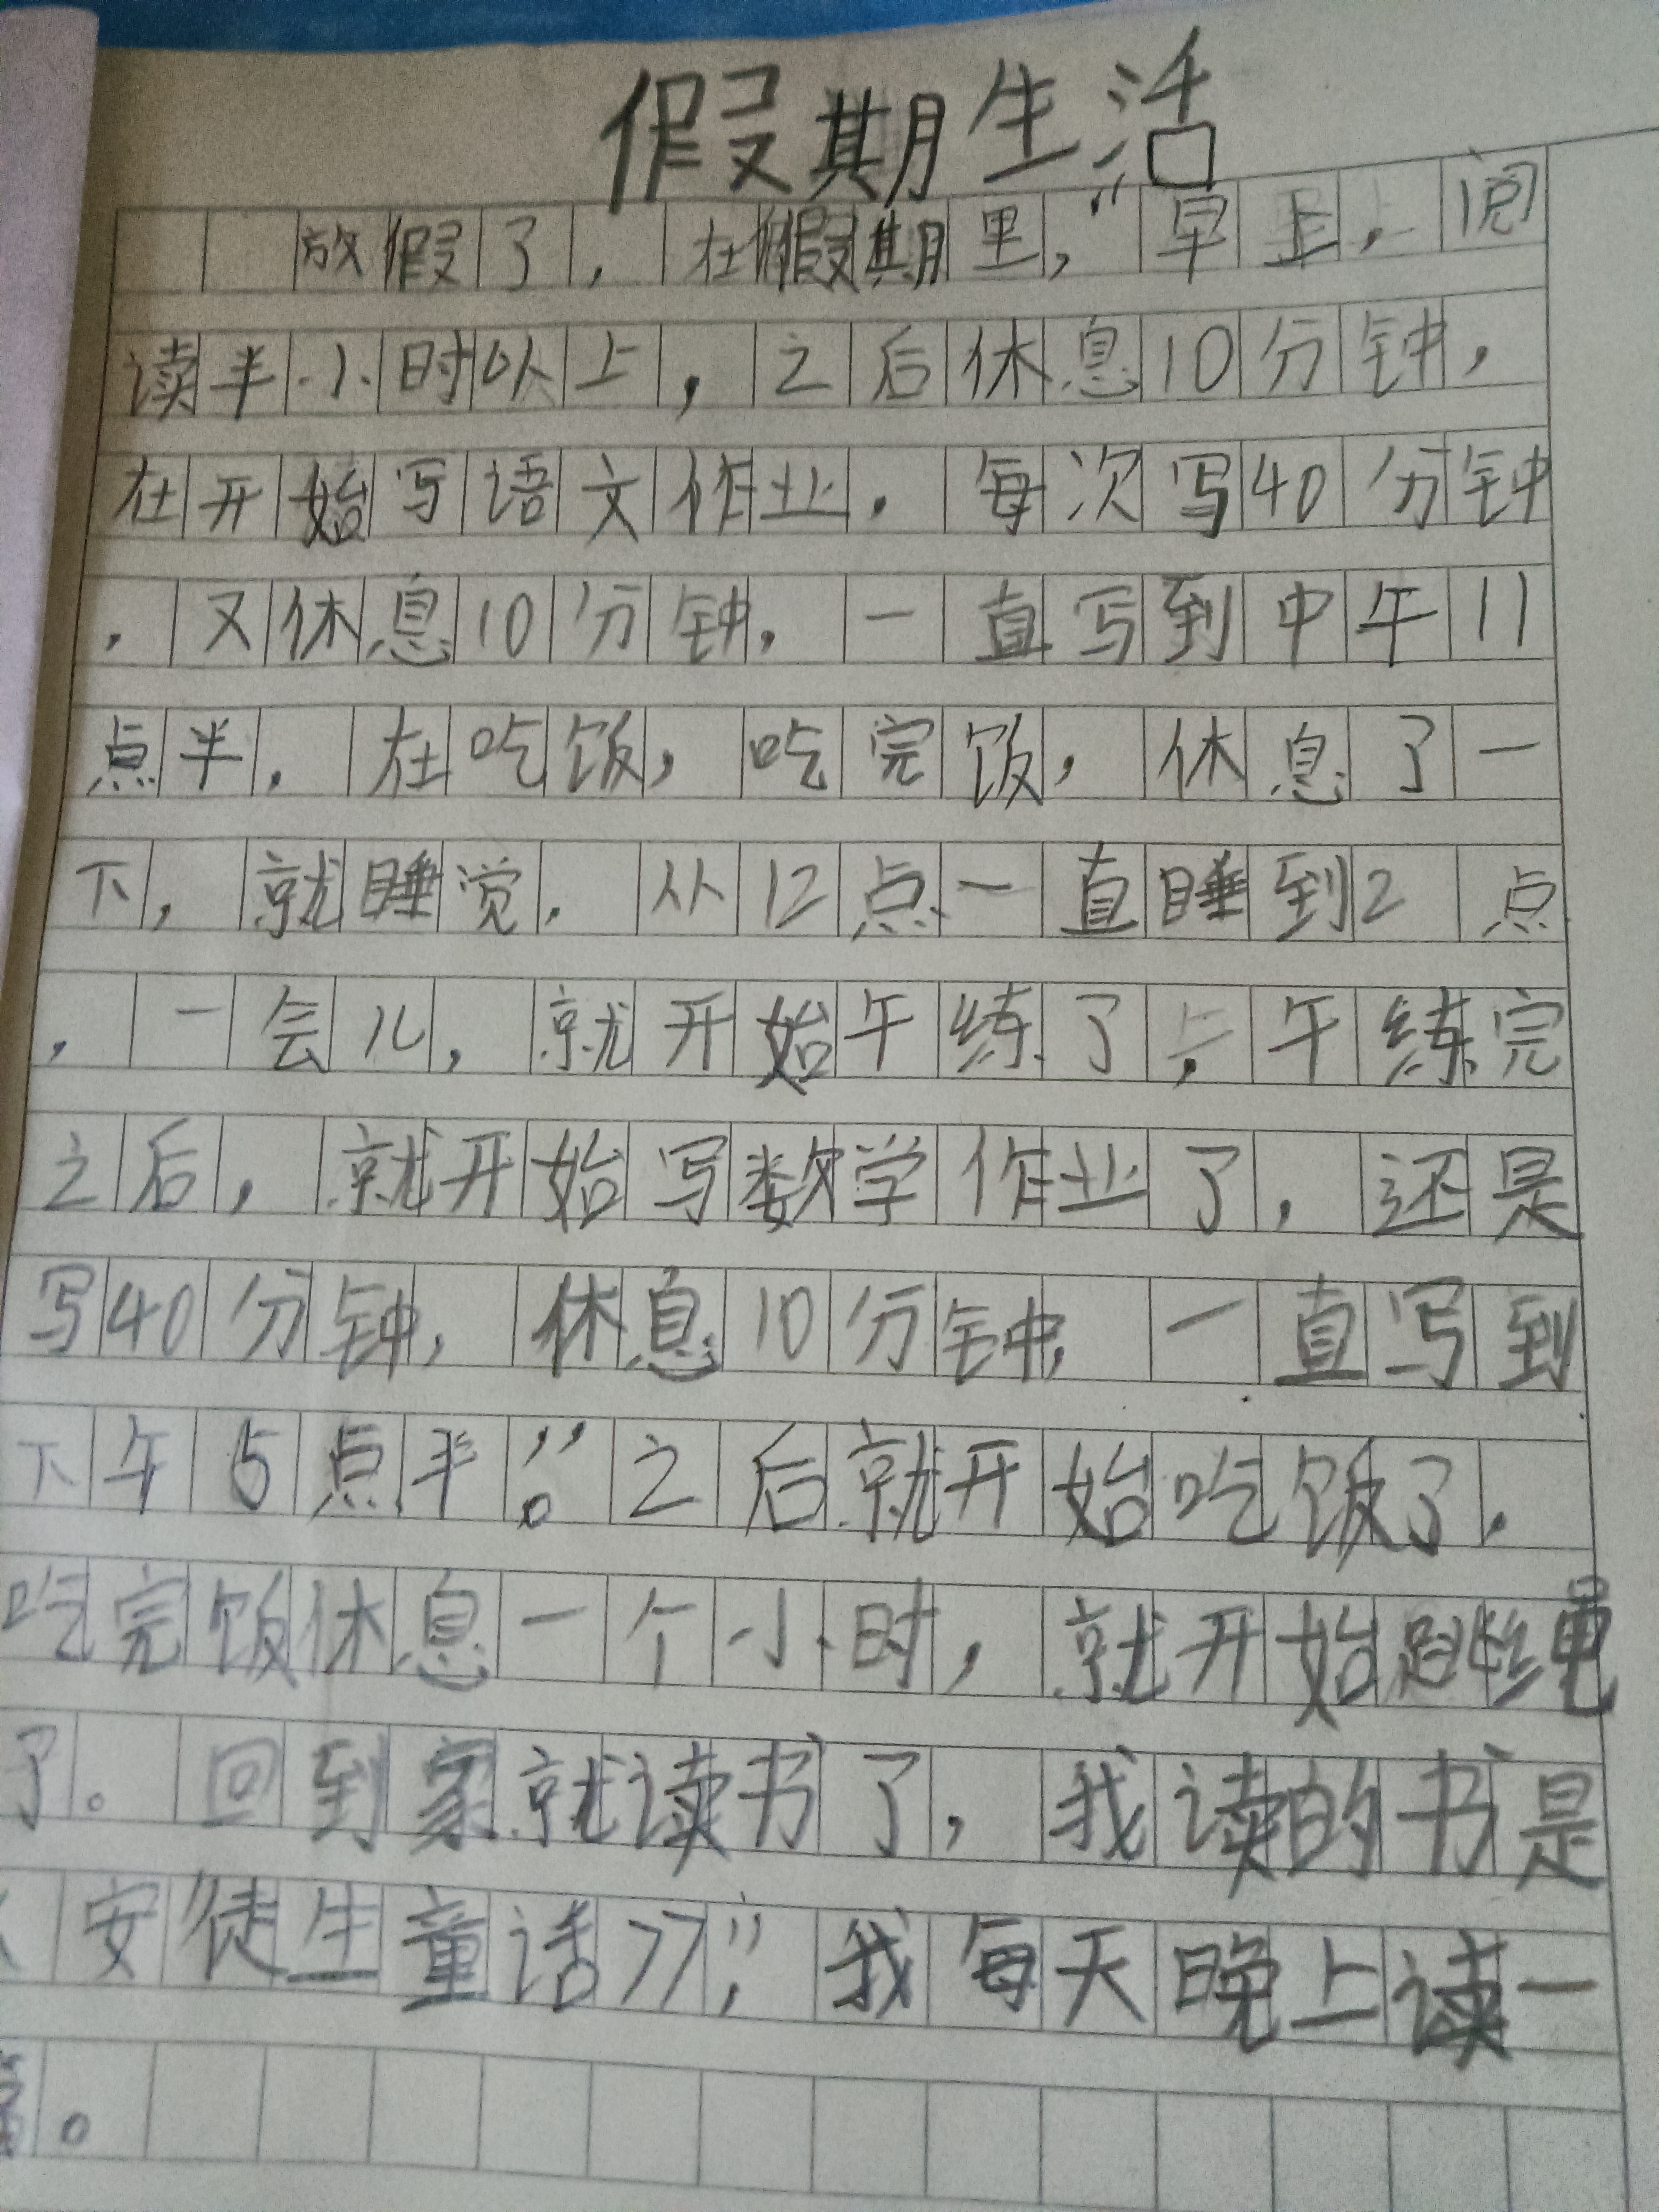 假期生活
放假了，在假期里，“早上，阅
读半小时以上，之后休息10分钟，
在开始写语文作业，每次写40分钟
，又休息10分钟，一直写到中午11
点半，在吃饭，吃完饭，休息了一
下，就睡觉，从12点一直睡到2点
，一会儿，就开始午练了，午练完
之后，就开始写数学作业了，还是
写40分钟，休息10分钟，一直写到
下午5点半。”之后就开始吃饭了，
吃完饭休息一个小时，就开始跳绳
了。回到家就读书了，我读的书是
《安徒生童话》，”我每天晚上读一
。